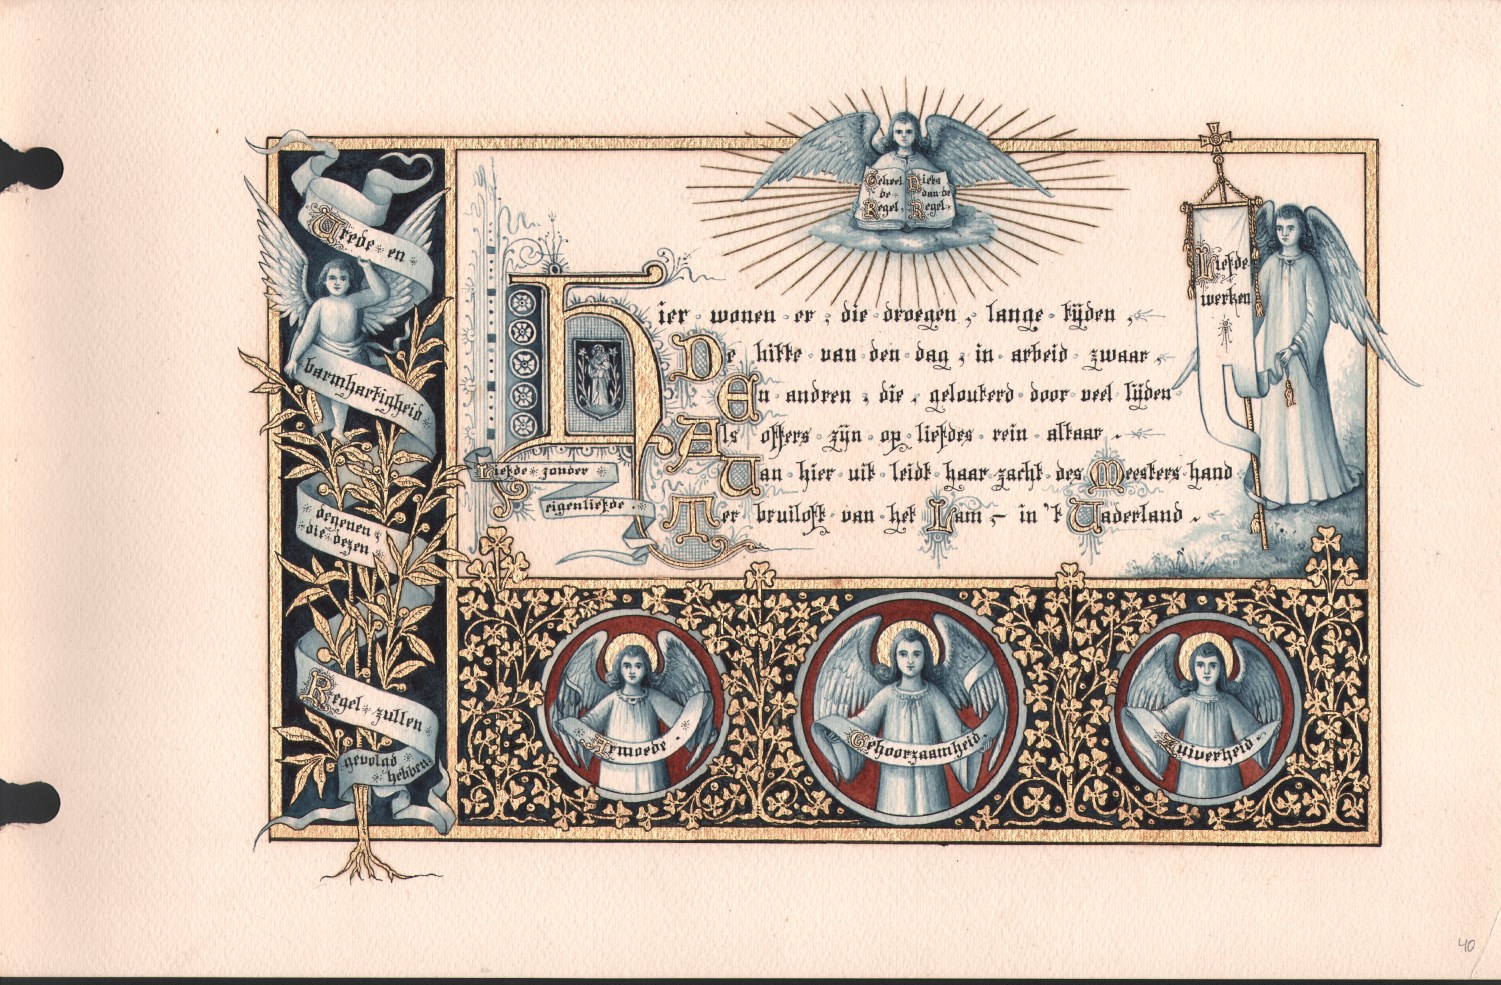 Vrede en
barmhartigheid
degenen,
die dezen
Regel zullen
gevolgd
hebben.
Geheel
de
Regel,
Niets
dan de
Regel.
Liefde
werken
Hier wonen er, die droegen, lange tijden,
De hitte van den dag, in arbeid zwaar,
En andren, die, gelouterd door veel lijden
Als offers zijn op liefdes rein altaar.
Van hier uit leidt haar zacht des Meesters hand
Ter bruiloft van het Lam – in 't Vaderland.
Liefde zonder
eigenliefde.
Armoede.
Gehoorzaamheid.
Zuiverheid.
40